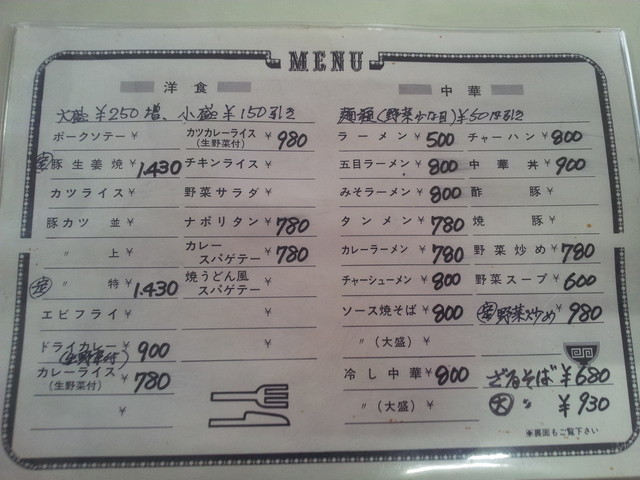 MENU
洋食
大盛 ¥250増、小盛¥150引き
ポークソテー ¥
豚生姜焼 ¥1.430
カツライス ¥
豚カツ 並 ¥
〃 上 ¥
〃 特 ¥1.430
エビフライ ¥
ドライカレー ¥900
(生野菜付)
カレーライス ¥780
(生野菜付)
¥
カツカレーライス ¥980
(生野菜付)
チキンライス ¥
野菜サラダ ¥
ナポリタン ¥780
カレー
スパゲテー ¥780
焼うどん風
スパゲテー ¥
¥
¥
中華
麺類(野菜少な目)¥50円引き
ラーメン ¥500
五目ラーメン ¥800
みそラーメン ¥800
タンメン ¥780
カレーラーメン ¥780
チャーシューメン ¥800
ソース焼そば ¥800
〃(大盛) ¥
冷し中華 ¥800
〃(大盛) ¥
チャーハン ¥800
中華丼 ¥900
酢豚 ¥
焼豚 ¥
野菜炒め ¥780
野菜スープ ¥600
野菜炒め ¥980
ざるそば ¥680
大 〃 ¥930
※裏面もご覧下さい